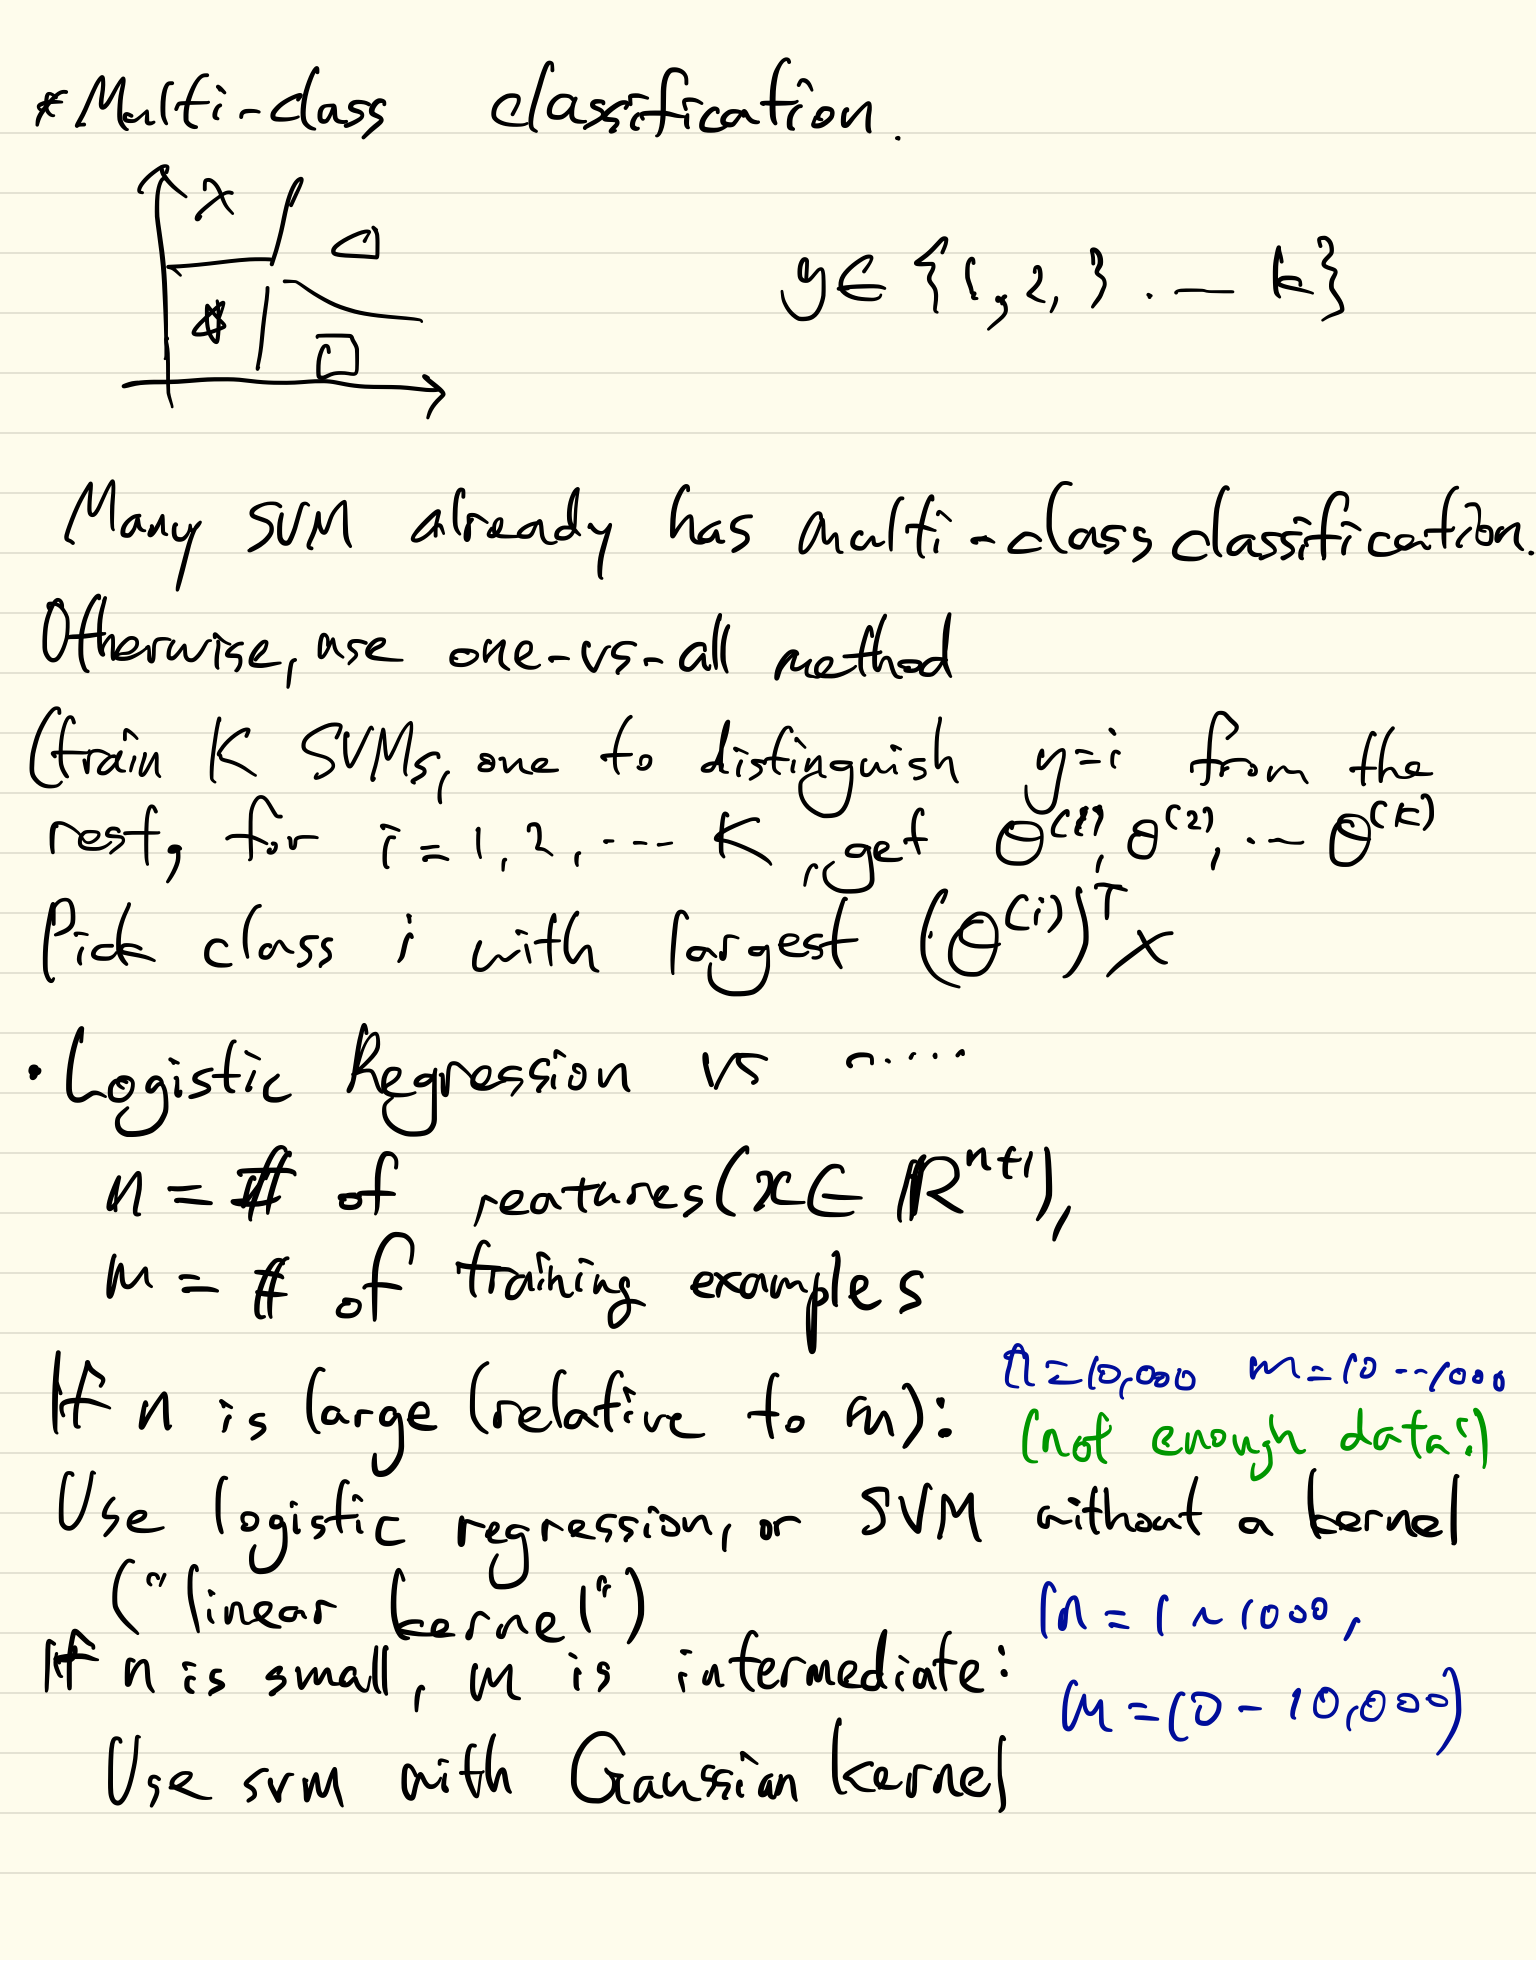 * Multi-class classification.
y ∈ {1, 2, 3 . — k}
Many SVM already has multi-class classification.
Otherwise, use one-vs-all method
(train K SVMs, one to distinguish y=i from the
rest, for i = 1, 2, ... K, get θ^(1), θ^(2), ... θ^(K)
Pick class i with largest (θ^(i))^T x
· Logistic Regression vs .....
n = # of features (x ∈ ℝ^n+1),
m = # of training examples
If n is large (relative to m):
n = 10,000 m = 10 -- 1000
(not enough data!)
Use logistic regression, or SVM without a kernel
("linear kernel")
If n is small, m is intermediate:
(n = 1 ~ 1000,
m = 10 - 10,000)
Use svm with Gaussian kernel